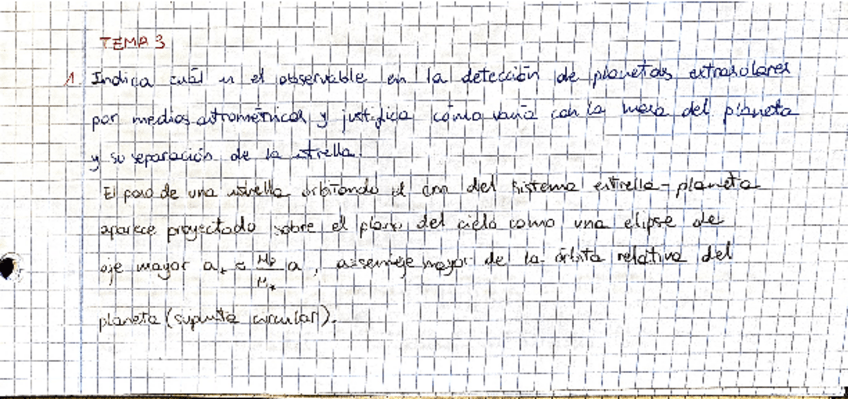 TEMA 3
1. Indica cuál es el observable en la detección de planetas extrasolares
por medios astrométricos y justifica cómo varía con la masa del planeta
y su separación de la estrella.
El paso de una estrella orbitando el cm del sistema estrella-planeta
aparece proyectado sobre el plano del cielo como una elipse de
eje mayor a* ≈ Mp/M* a, a = semieje mayor de la órbita relativa del
planeta (supuesta circular).